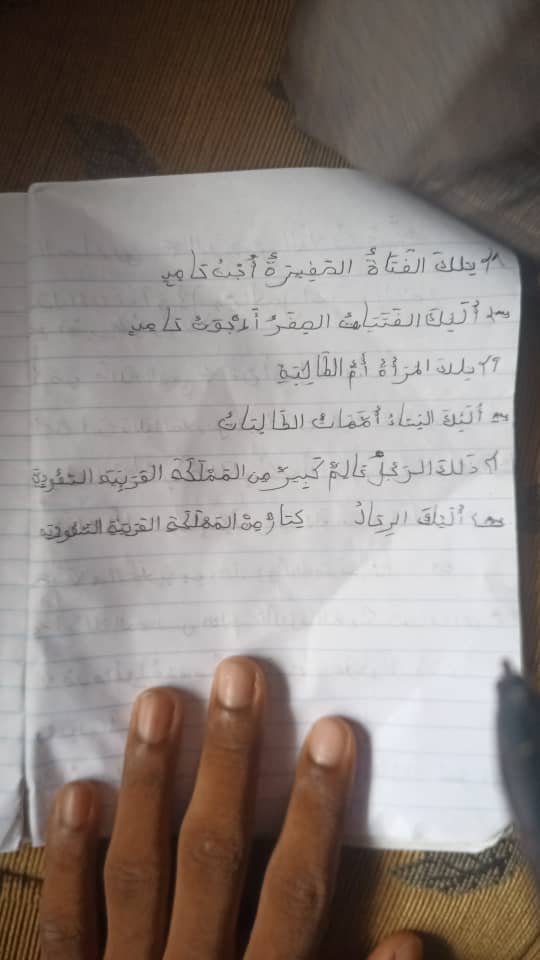 تِلكَ الفَتَاةُ الصَّغِيرَةُ أُخْتُ حَامِدٍ
أُلَئِكَ الفَتَيَاتُ الصِغَرُ أَخَوَتُ حَامِدٍ
تِلكَ المَرْأَةُ أُمُّ الطَّالِبَةِ
أُلَئِكَ النِسَاءُ أُمَّهَاتُ الطَّالِبَاتُ
ذَلِكَ الرَّجُلُ عَالِمٌ كَبِيرٌ مِنَ المَمْلَكَةِ العَرَبِيَّةِ السُّعُودِيَّةِ
أُلَئِكَ الرِجَالُ كِبَارٌ مِنَ المَمْلَكَةِ العَرَبِيَّةِ السُّعُودِيَّةِ